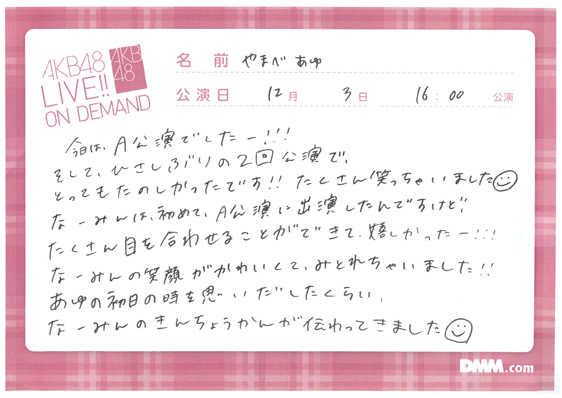 AKB48
LIVE!!
ON DEMAND
AKB
48
名前 やまべ あゆ
公演日 12月 3日 16:00 公演
今日は、A公演でしたー!!!
そして、ひさしぶりの2回公演で、
とってもたのしかったです!! たくさん笑っちゃいました☺
なーみんは、初めて、A公演に出演したんですけど、
たくさん目を合わせることができて、嬉しかったー!!!
なーみんの笑顔がかわいくて、みとれちゃいました!!
あゆの初日の時を思いだしたくらい、
なーみんのきんちょうかんが伝わってきました☺
DMM.com